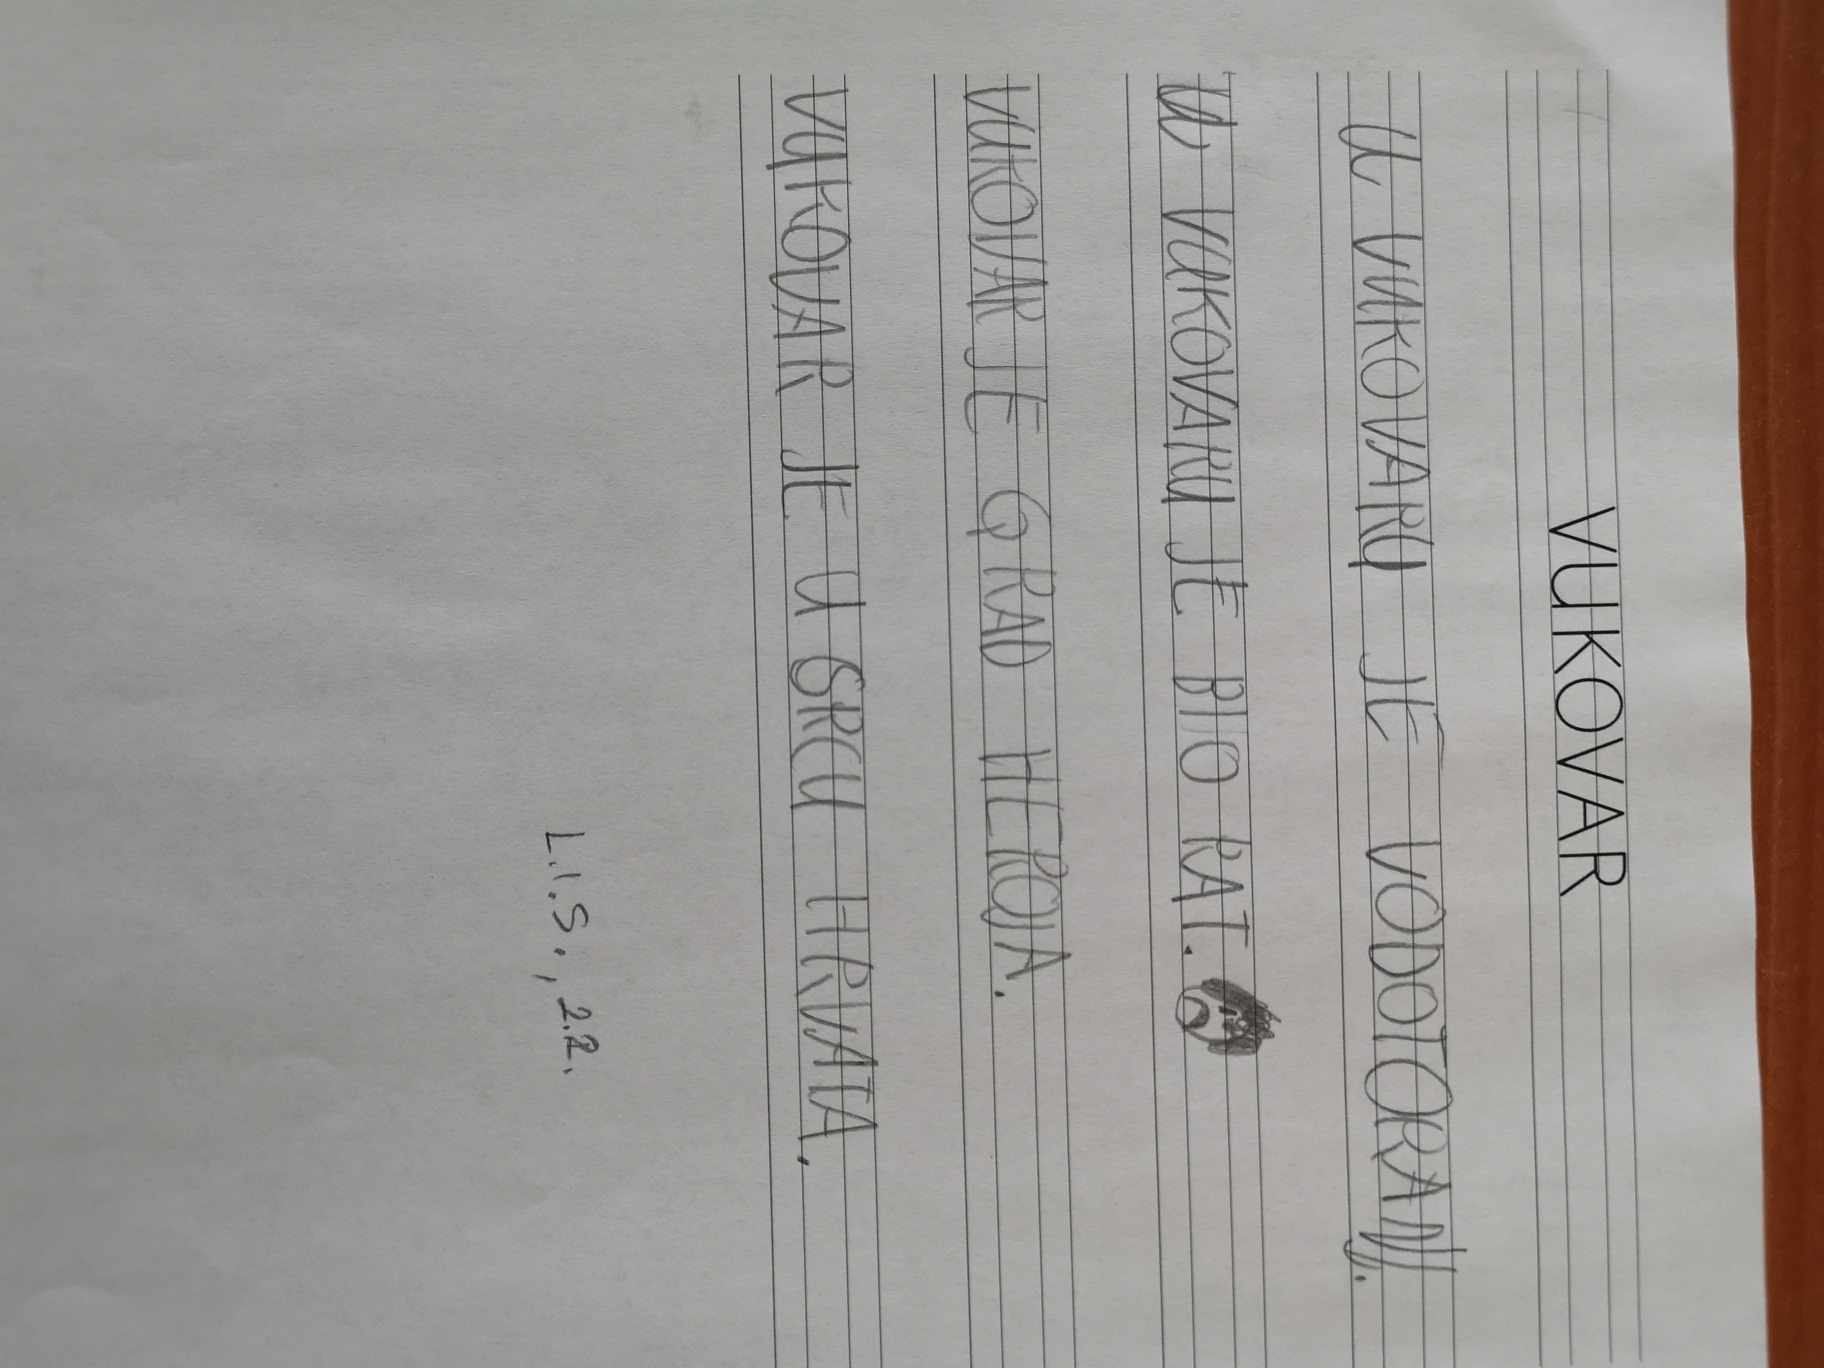 VUKOVAR
U VUKOVARU JE VODOTORANJ.
U VUKOVARU JE BIO RAT.
VUKOVAR JE GRAD HEROJA.
VUKOVAR JE U SRCU HRVATA.
L.I.S., 2.R.